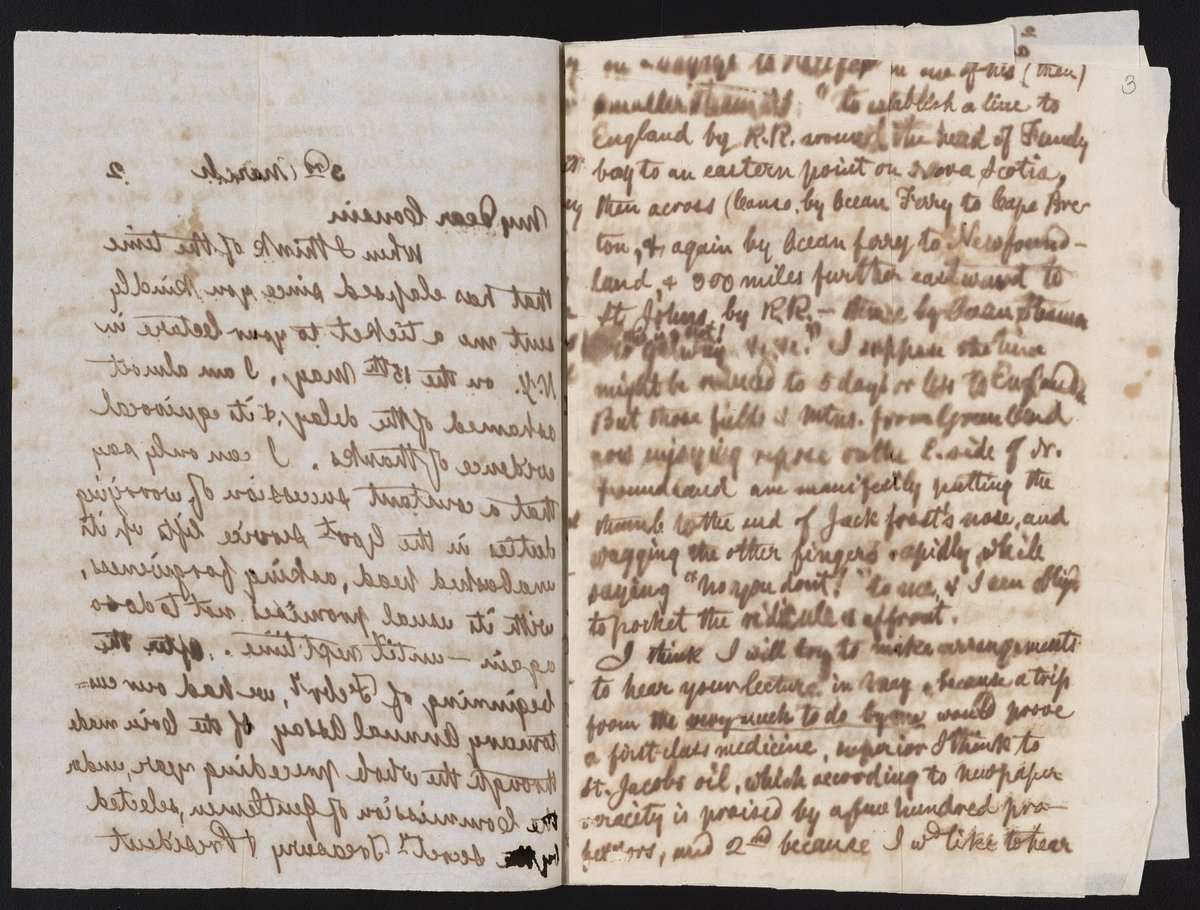 3rd March 2
My dear Cousin
When I think of the time
that has elapsed since you kindly
sent me a ticket to your lecture in
N.Y. on the 15th May, I am almost
ashamed of the delay, & its equivocal
evidence of thanks. I can only say
that a constant succession of worrying
duties in the Govt service lifts up its
unabashed head, asking forgiveness,
with its usual promises not to do so
again — until next time. After the
beginning of Febr'y, we had our cus=
tomary Annual Assay of the Coin made
through the whole preceding year, under
the Commission of gentlemen, selected
by secret'y Treasury & President
3
on a voyage to Halifax in one of his (then)
smaller steamers. "to establish a line to
England by R.R. around the head of Fundy
bay to an eastern point on Nova Scotia,
then across Canso, by Ocean Ferry to Cape Bre-
ton, & again by Ocean ferry to Newfound-
land, & 300 miles further eastward to
St Johns, by R.R. — thence by Ocean Steamer
to Galway I suppose the time
might be reduced to 5 days or less to England.
But those fields & mtns. from Greenland
now enjoying repose on the E. side of N.
foundland are manifestly putting the
thumb to the end of Jack frost's nose, and
wagging the other fingers rapidly, while
saying "no you dont!" to me, & I seen
to pocket the ridicule & affront.
I think I will try to make arrangements
to hear your lecture in May, because a trip
from the very much to do by me would prove
a first-class medicine, superior I think to
St. Jacobs oil, which according to newspaper
veracity is praised by a few hundred pro-
fessors, and 2nd because I wd like to hear